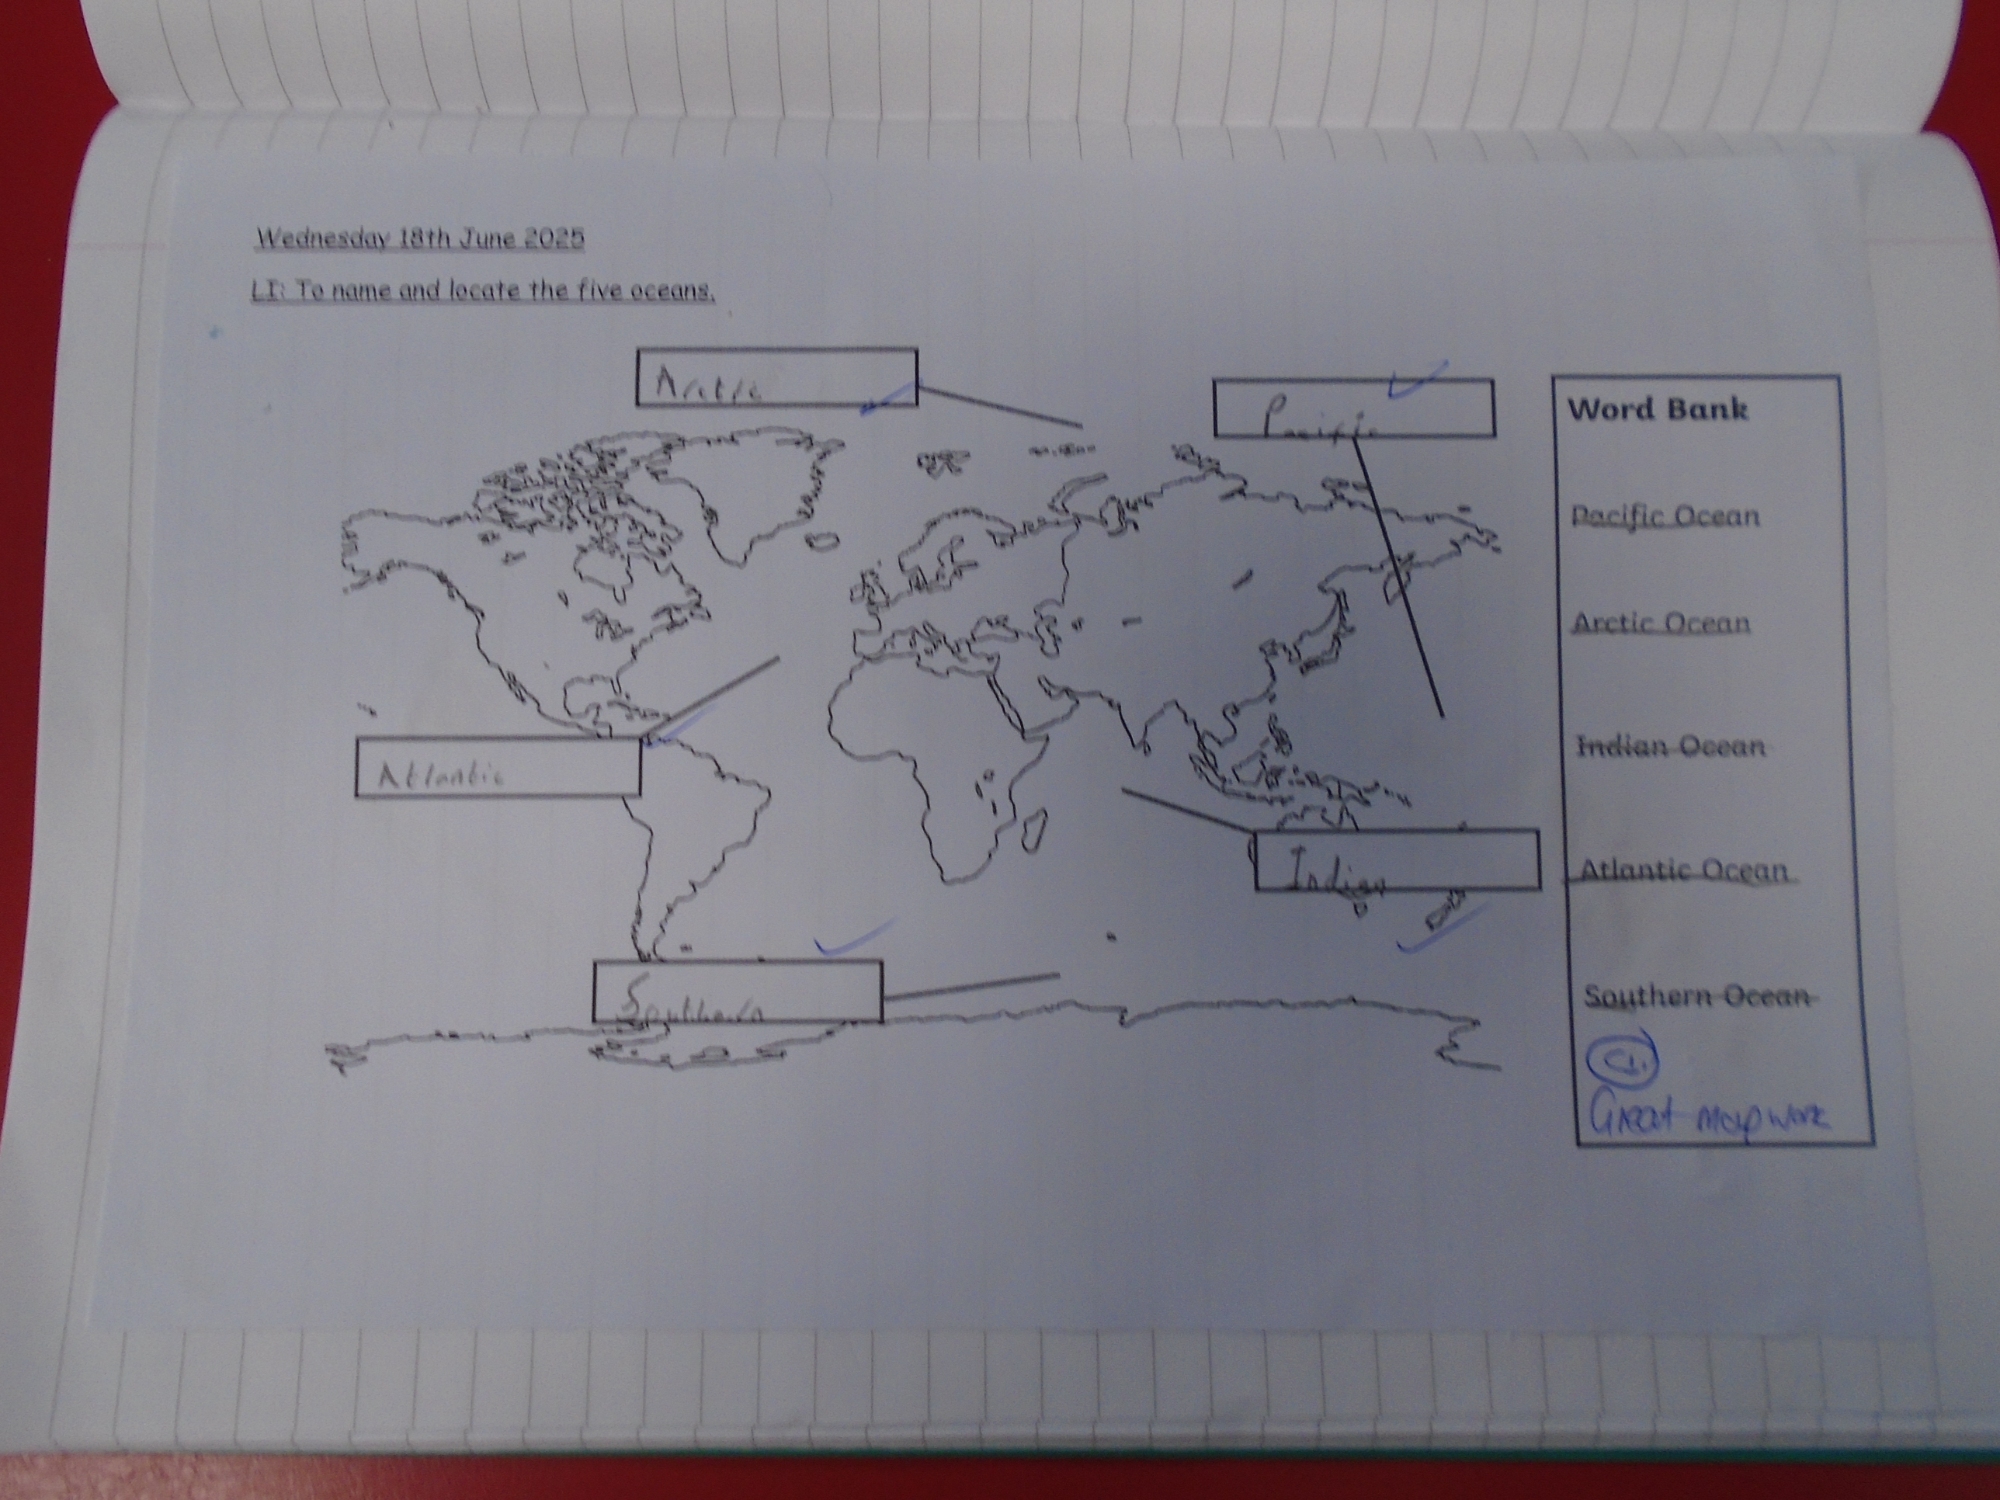 Wednesday 18th June 2025
LI: To name and locate the five oceans.
Arctic
Pacific
Atlantic
Indian
Southern
Word Bank
Pacific Ocean
Arctic Ocean
Indian Ocean
Atlantic Ocean
Southern Ocean
Great map work